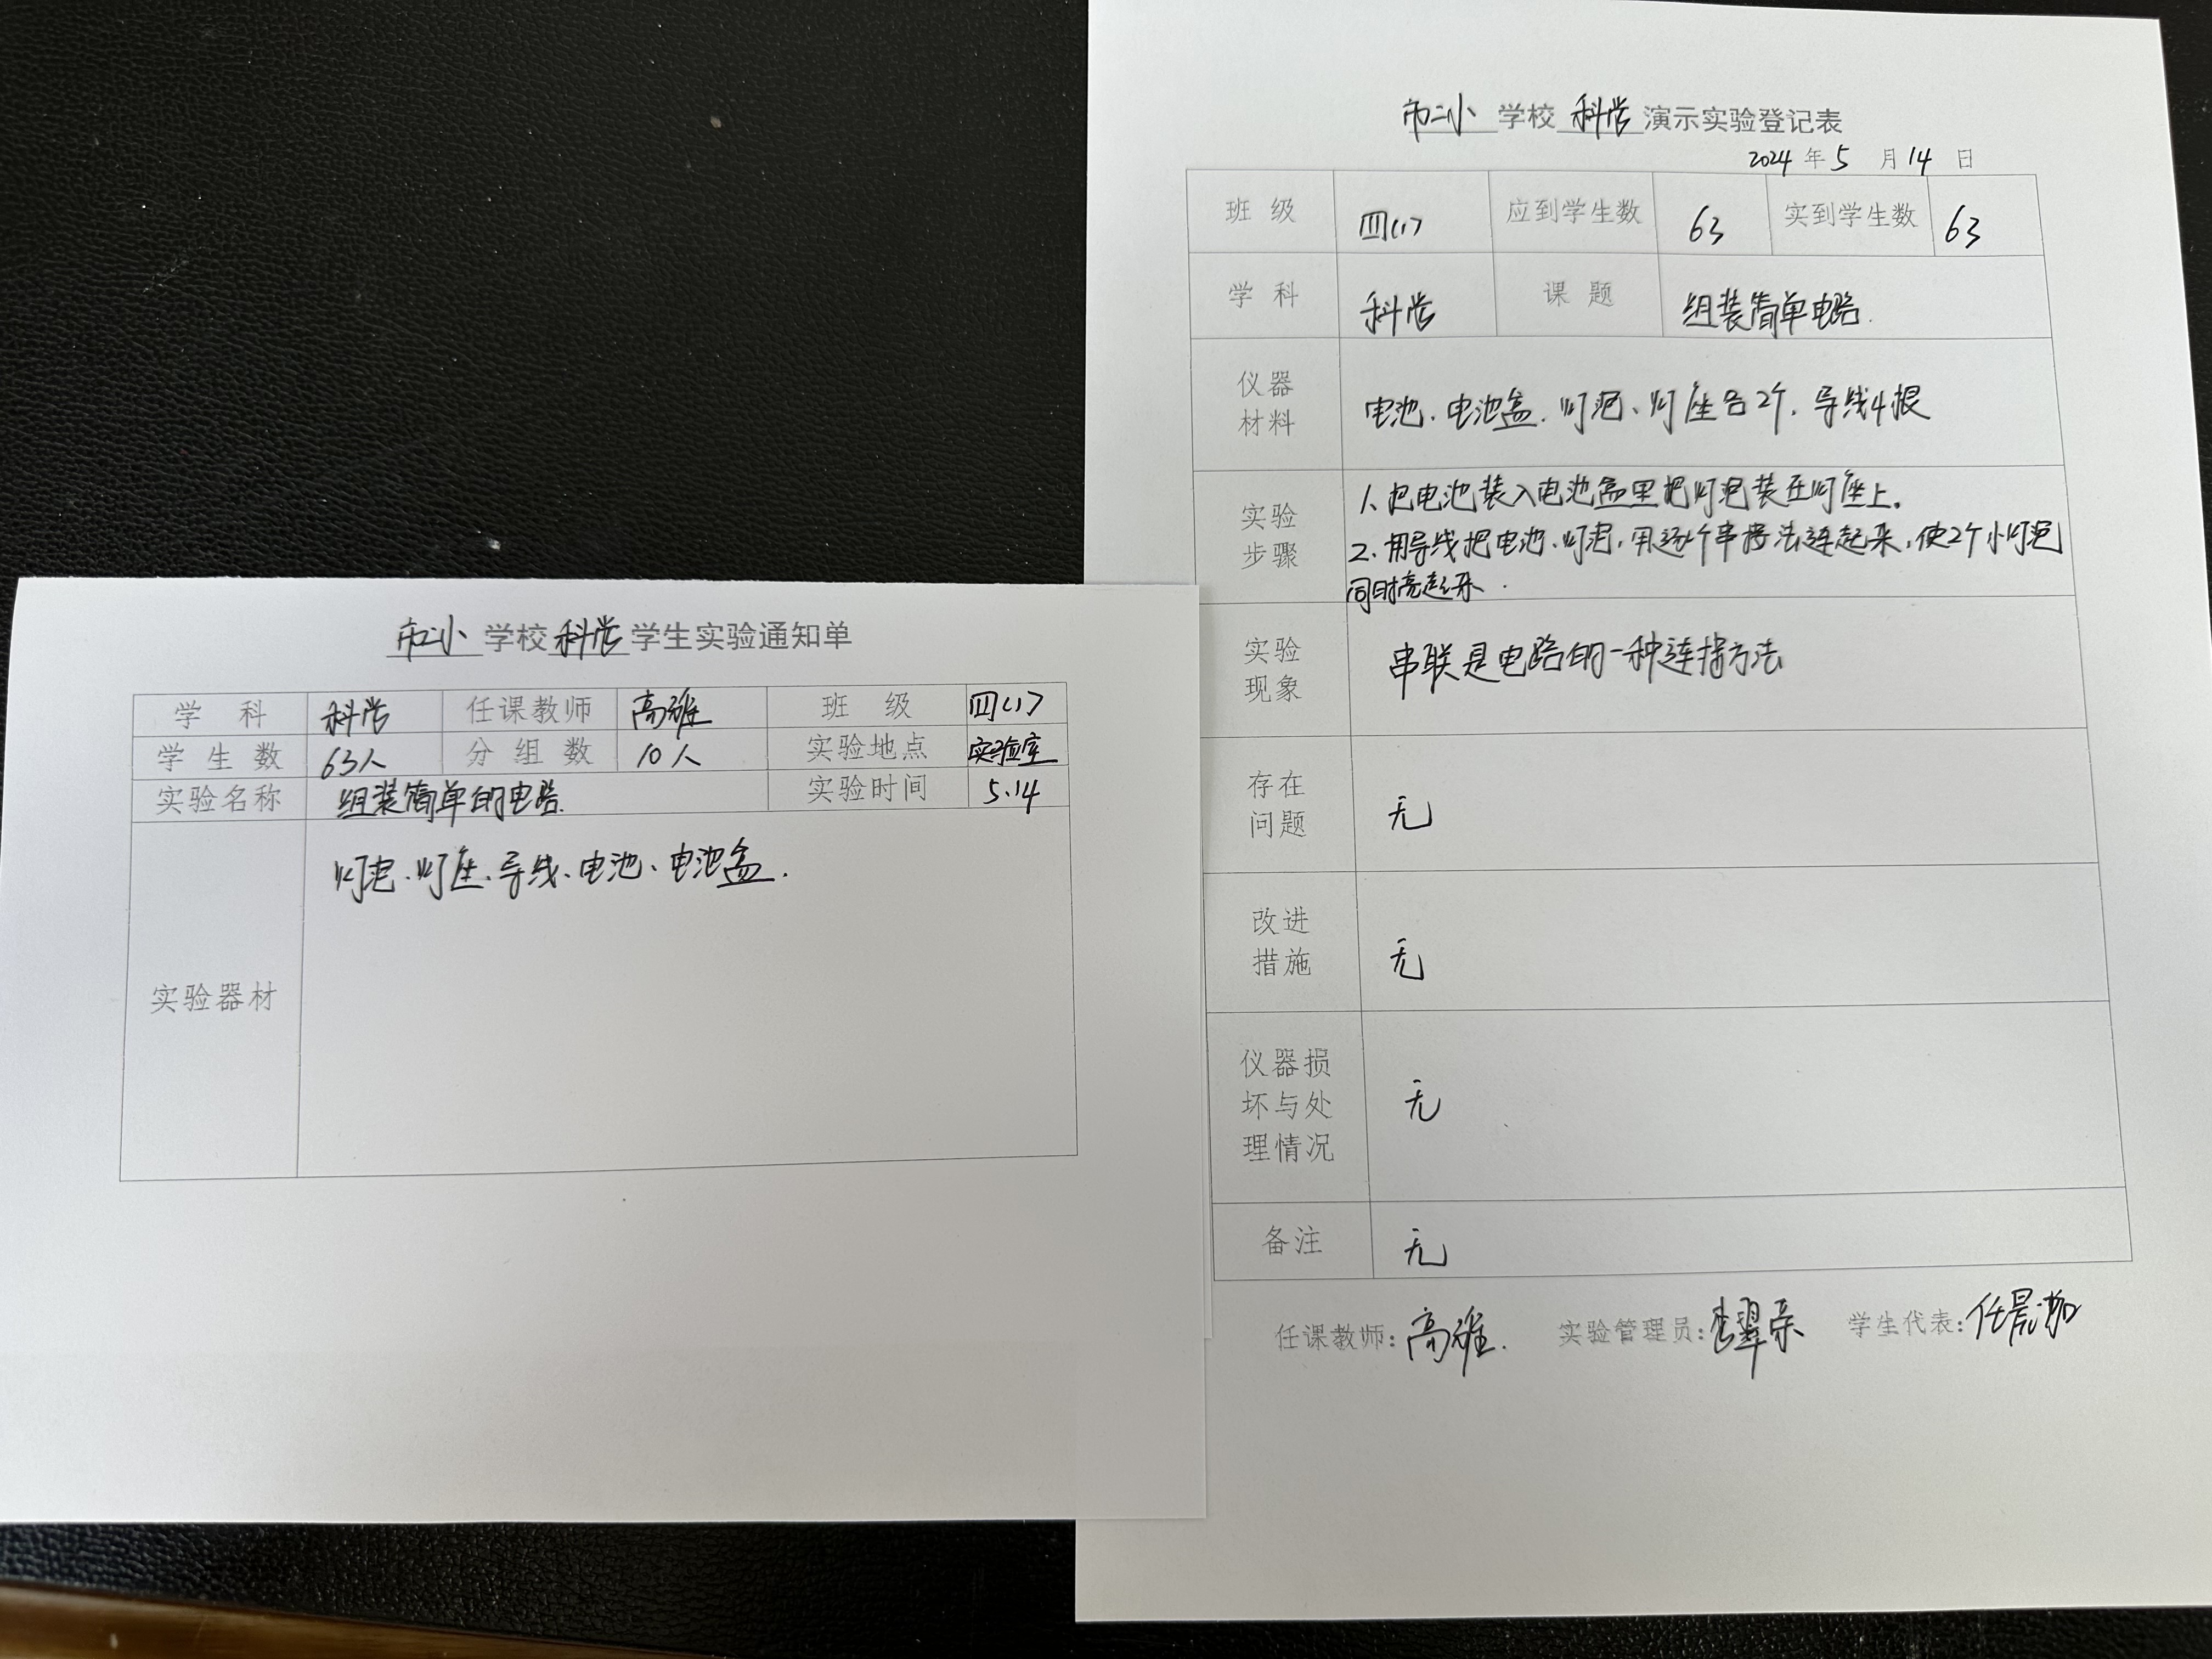 市二小 学校 科学 学生实验通知单
学 科 科学 任课教师 高雅 班 级 四(1)
学 生 数 63人 分 组 数 10人 实验地点 实验室
实验名称 组装简单的电路. 实验时间 5.14
实验器材 灯泡、灯座、导线、电池、电池盒.
市二小 学校 科学 演示实验登记表
2024 年 5 月 14 日
班 级 四(1) 应到学生数 63 实到学生数 63
学 科 科学 课 题 组装简单电路.
仪器
材料
电池、电池盒、灯泡、灯座各2个,导线4根
实验
步骤
1、把电池装入电池盒里把灯泡装在灯座上。
2、用导线把电池、灯泡,用逐个串接法连起来,使2个小灯泡
同时亮起来.
实验
现象
串联是电路的一种连接方法
存在
问题
无
改进
措施
无
仪器损
坏与处
理情况
无
备注 无
任课教师: 高雅. 实验管理员: 学生代表: 任